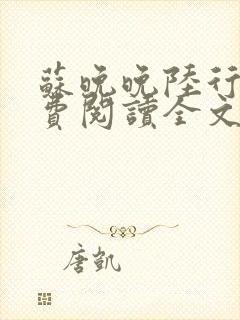 蘇晚晚陸行
費閱讀全文
唐凱